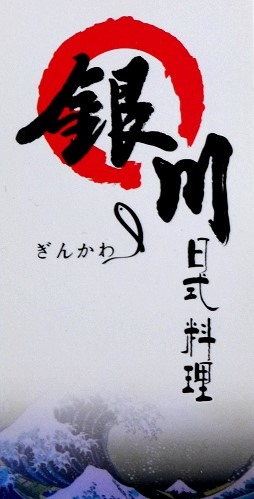 銀川
ぎんかわ
日式料理